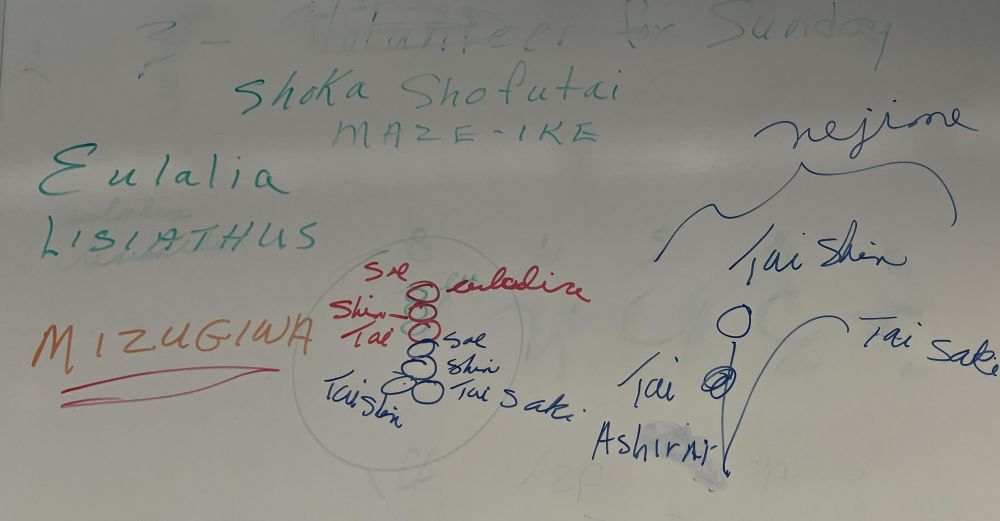 3 - Volunteer for Sunday
Shoka Shofutai
MAZE-IKE
nejime
Eulalia
LISIATHUS
Tai Shin
MIZUGIWA
Soe
Shin
Tai
Soe
Shin
Tai Shin
Tai Saki
Tai Saki
Tai